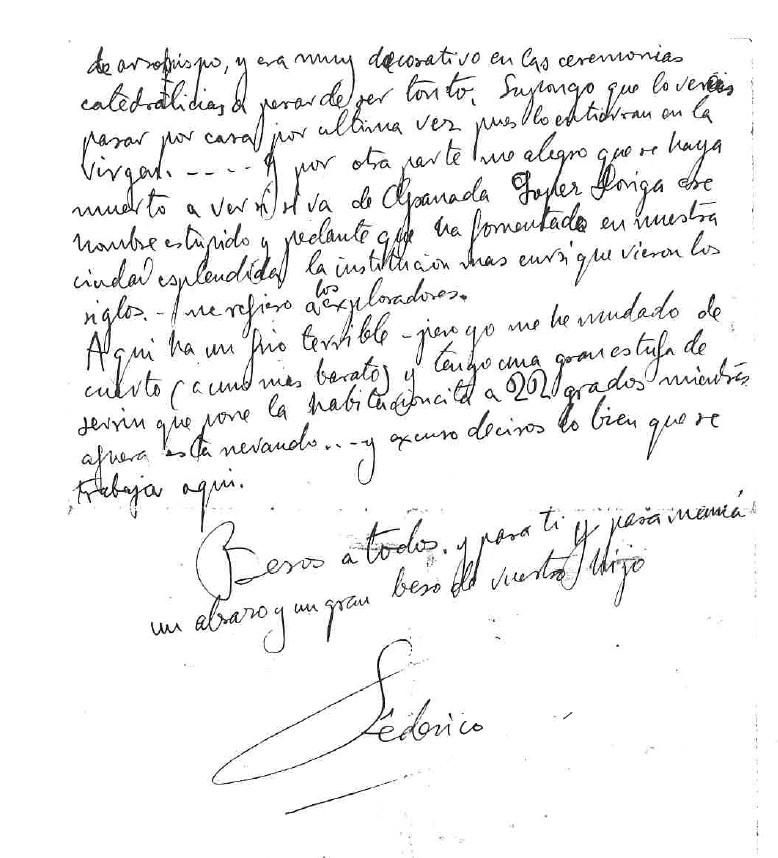 de arsobispo, y era muy decorativo en las ceremonias
catedralicias a pesar de ser tonto. Supongo que lo vereis
pasar por casa por ultima vez pues lo entierran en la
virgen. - - - - - Y por otra parte me alegro que se haya
muerto a ver si se va de Granada Loper ese
hombre estupido y pedante que ha fomentado en nuestra
ciudad esplendida la institucion mas cursi que vieron los
siglos. - me refiero a los exploradores.
Aqui ha un frio terrible - pero yo me he mudado de
cuarto (a uno mas barato) y tengo una gran estufa de
serrin que pone la habitacioncita a 22 grados mientras
afuera esta nevando... - y excuso deciros lo bien que se
trabaja aqui.
Besos a todos. y para ti y para mamá
un abrazo y un gran beso de vuestro hijo
Federico